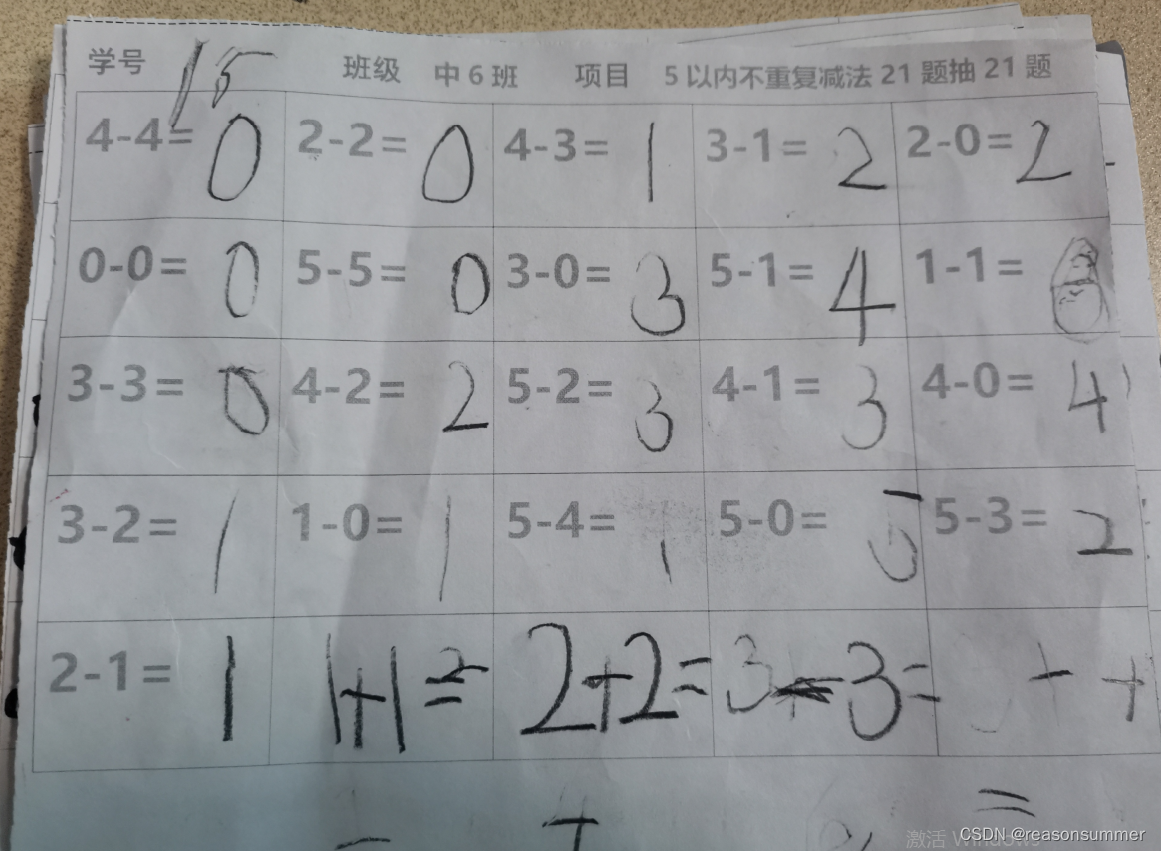 学号 15 班级 中6班 项目 5以内不重复减法21题抽21题
4-4= 0 2-2= 0 4-3= 1 3-1= 2 2-0= 2
0-0= 0 5-5= 0 3-0= 3 5-1= 4 1-1=
3-3= 0 4-2= 2 5-2= 3 4-1= 3 4-0= 4
3-2= 1 1-0= 1 5-4= 1 5-0= 5 5-3= 2
2-1= 1 1+1=2 2+2= 3 3= + +
=
激活 Windows
CSDN @reasonsummer